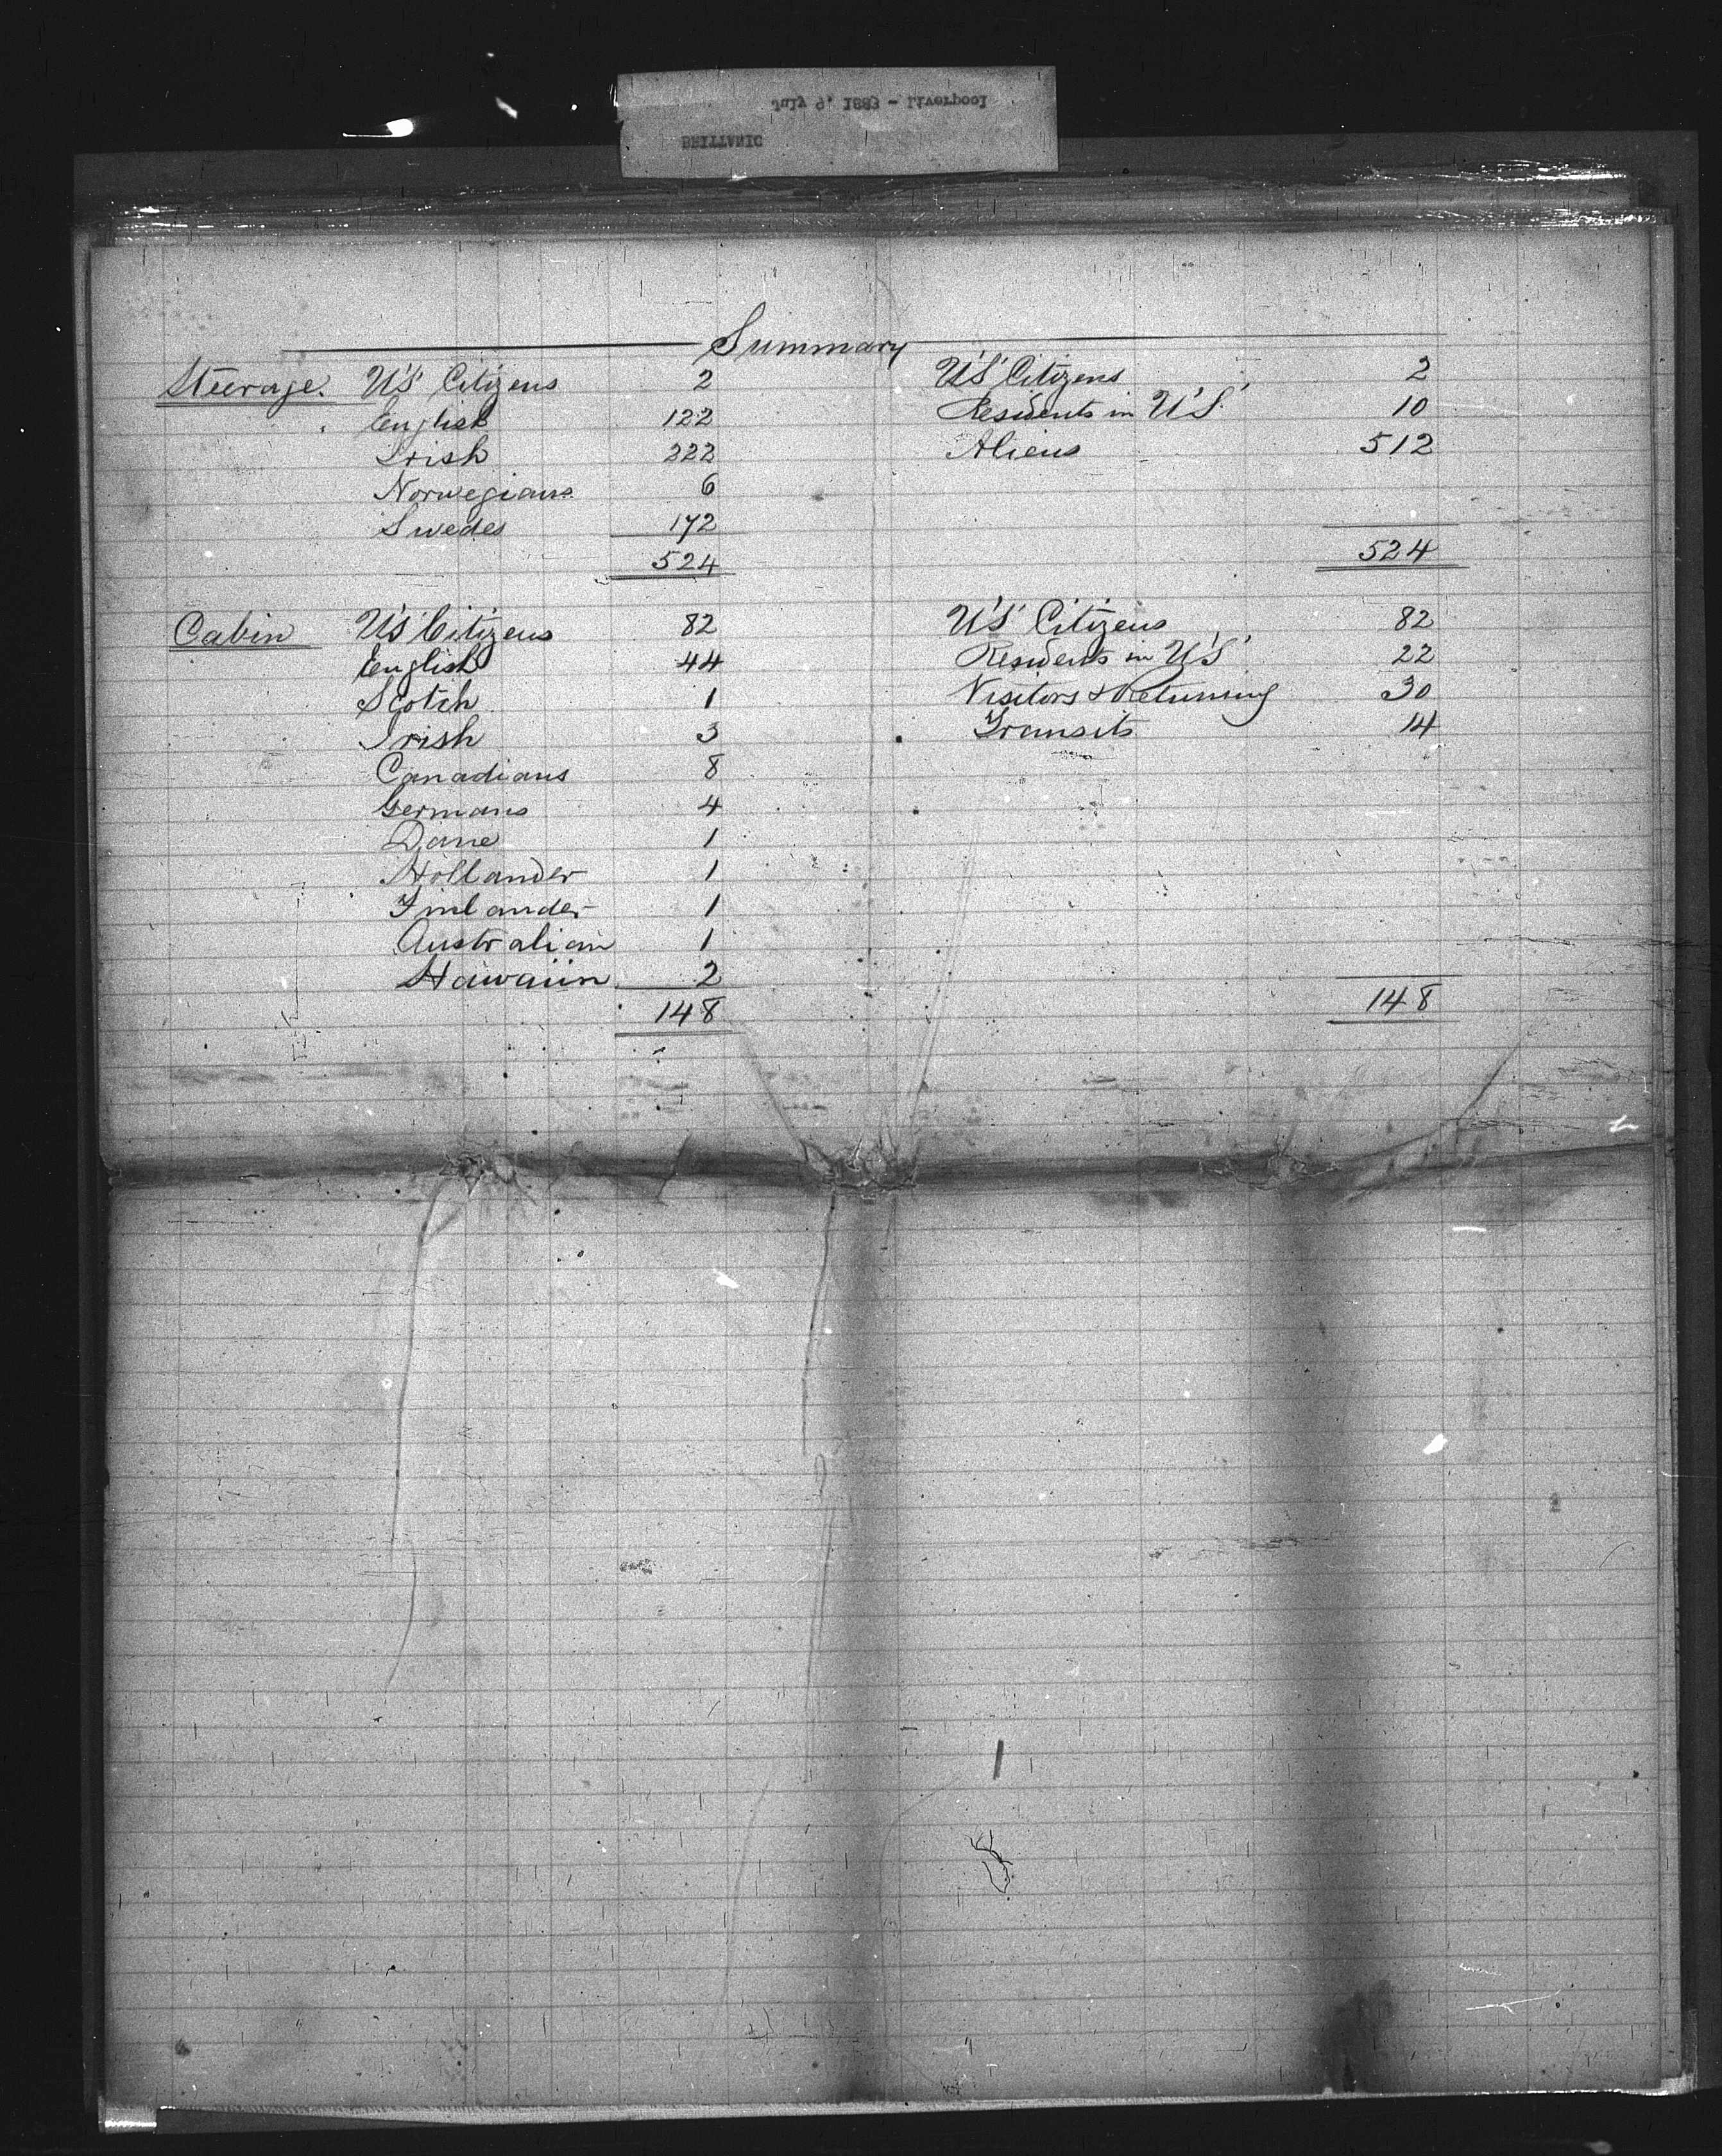 July 9, 1883 - Liverpool
BRITTANIC
Summary
Steerage. U.S. Citizens 2 U.S. Citizens 2
English 122 Residents in U.S. 10
Irish 222 Aliens 512
Norwegians 6
Swedes 172
524 524
Cabin U.S. Citizens 82 U.S. Citizens 82
English 44 Residents in U.S. 22
Scotch 1 Visitors & Returning 30
Irish 3 Transits 14
Canadians 8
Germans 4
Dane 1
Hollander 1
Finlander 1
Australian 1
Hawaiin 2
148 148